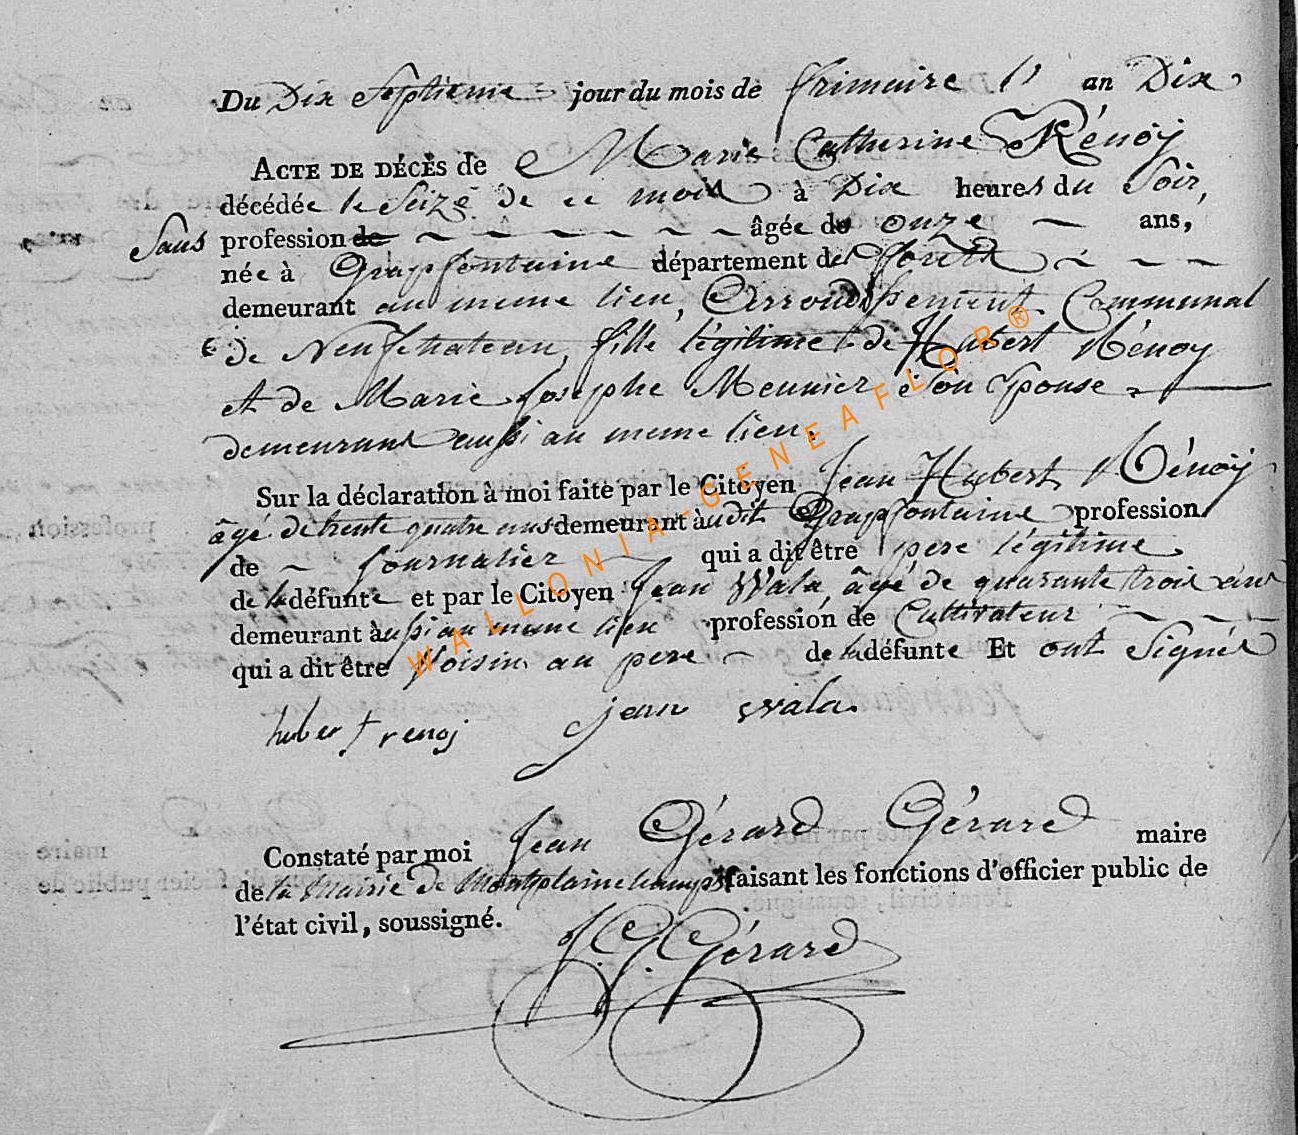 Du Dix Septieme jour du mois de frimaire l' an Dix
ACTE DE DÉCÈS de Marie Catherine Rénoÿ
décédée le Seize de ce mois à Dix heures du Soir,
Sans profession de âgée de onze ans,
née à Grapfontaine département des forêts
demeurant au meme lieu, Arrondissement Communal
de Neufchateau, fille légitime de Hubert Rénoy
et de Marie Josephe Meunier Son Epouse
demeurant aussi au meme lieu.
Sur la déclaration à moi faite par le Citoyen Jean Hubert Rénoÿ
âgé de trente quatre ans demeurant àudit Grapfontaine profession
de Journalier qui a dit être pere légitime
de la défunte et par le Citoyen Jean Wala, âgé de quarante trois ans
demeurant àussi au meme lieu profession de Cultivateur
qui a dit être Voisin au pere de la défunte Et ont Signés
hubert renoj jean wala.
Constaté par moi Jean Gérard Gérard maire
de la Mairie de Montplainchamps faisant les fonctions d'officier public de
l'état civil, soussigné.
J. G. Gérard
WALLONIA-GENEAFLOR®